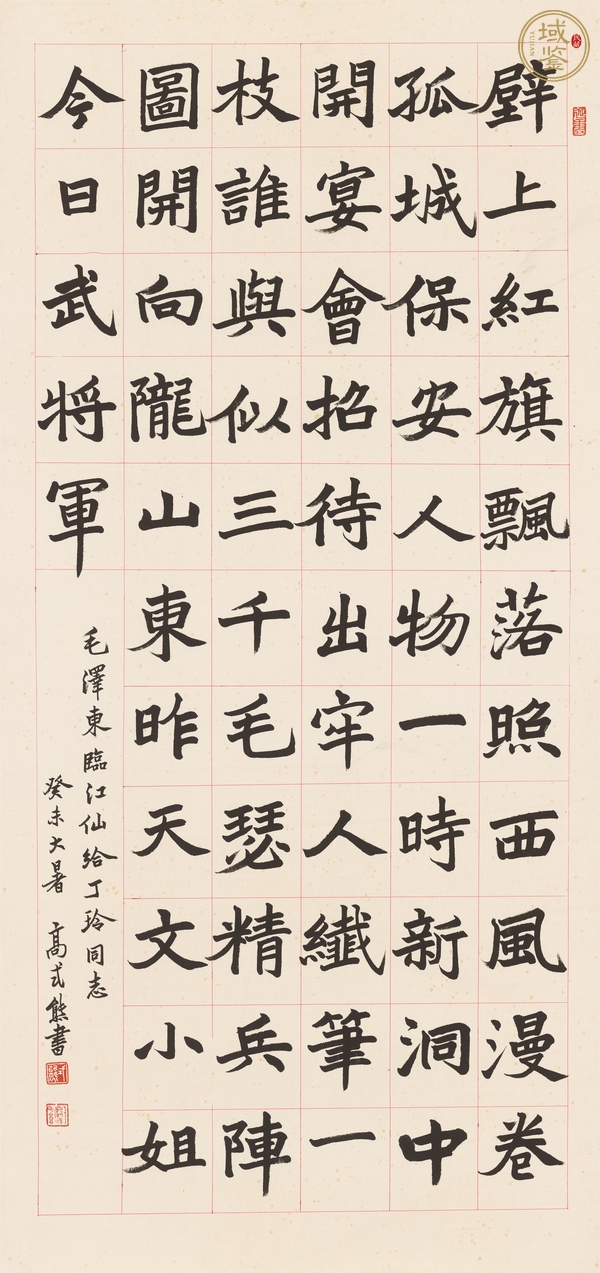 壁上紅旗飄落照西風漫卷
孤城保安人物一時新洞中
開宴會招待出牢人纖筆一
枝誰與似三千毛瑟精兵陣
圖開向隴山東昨天文小姐
今日武将軍
毛澤東臨江仙給丁玲同志
癸未大暑 高式熊書
域鉴
YUJIAN